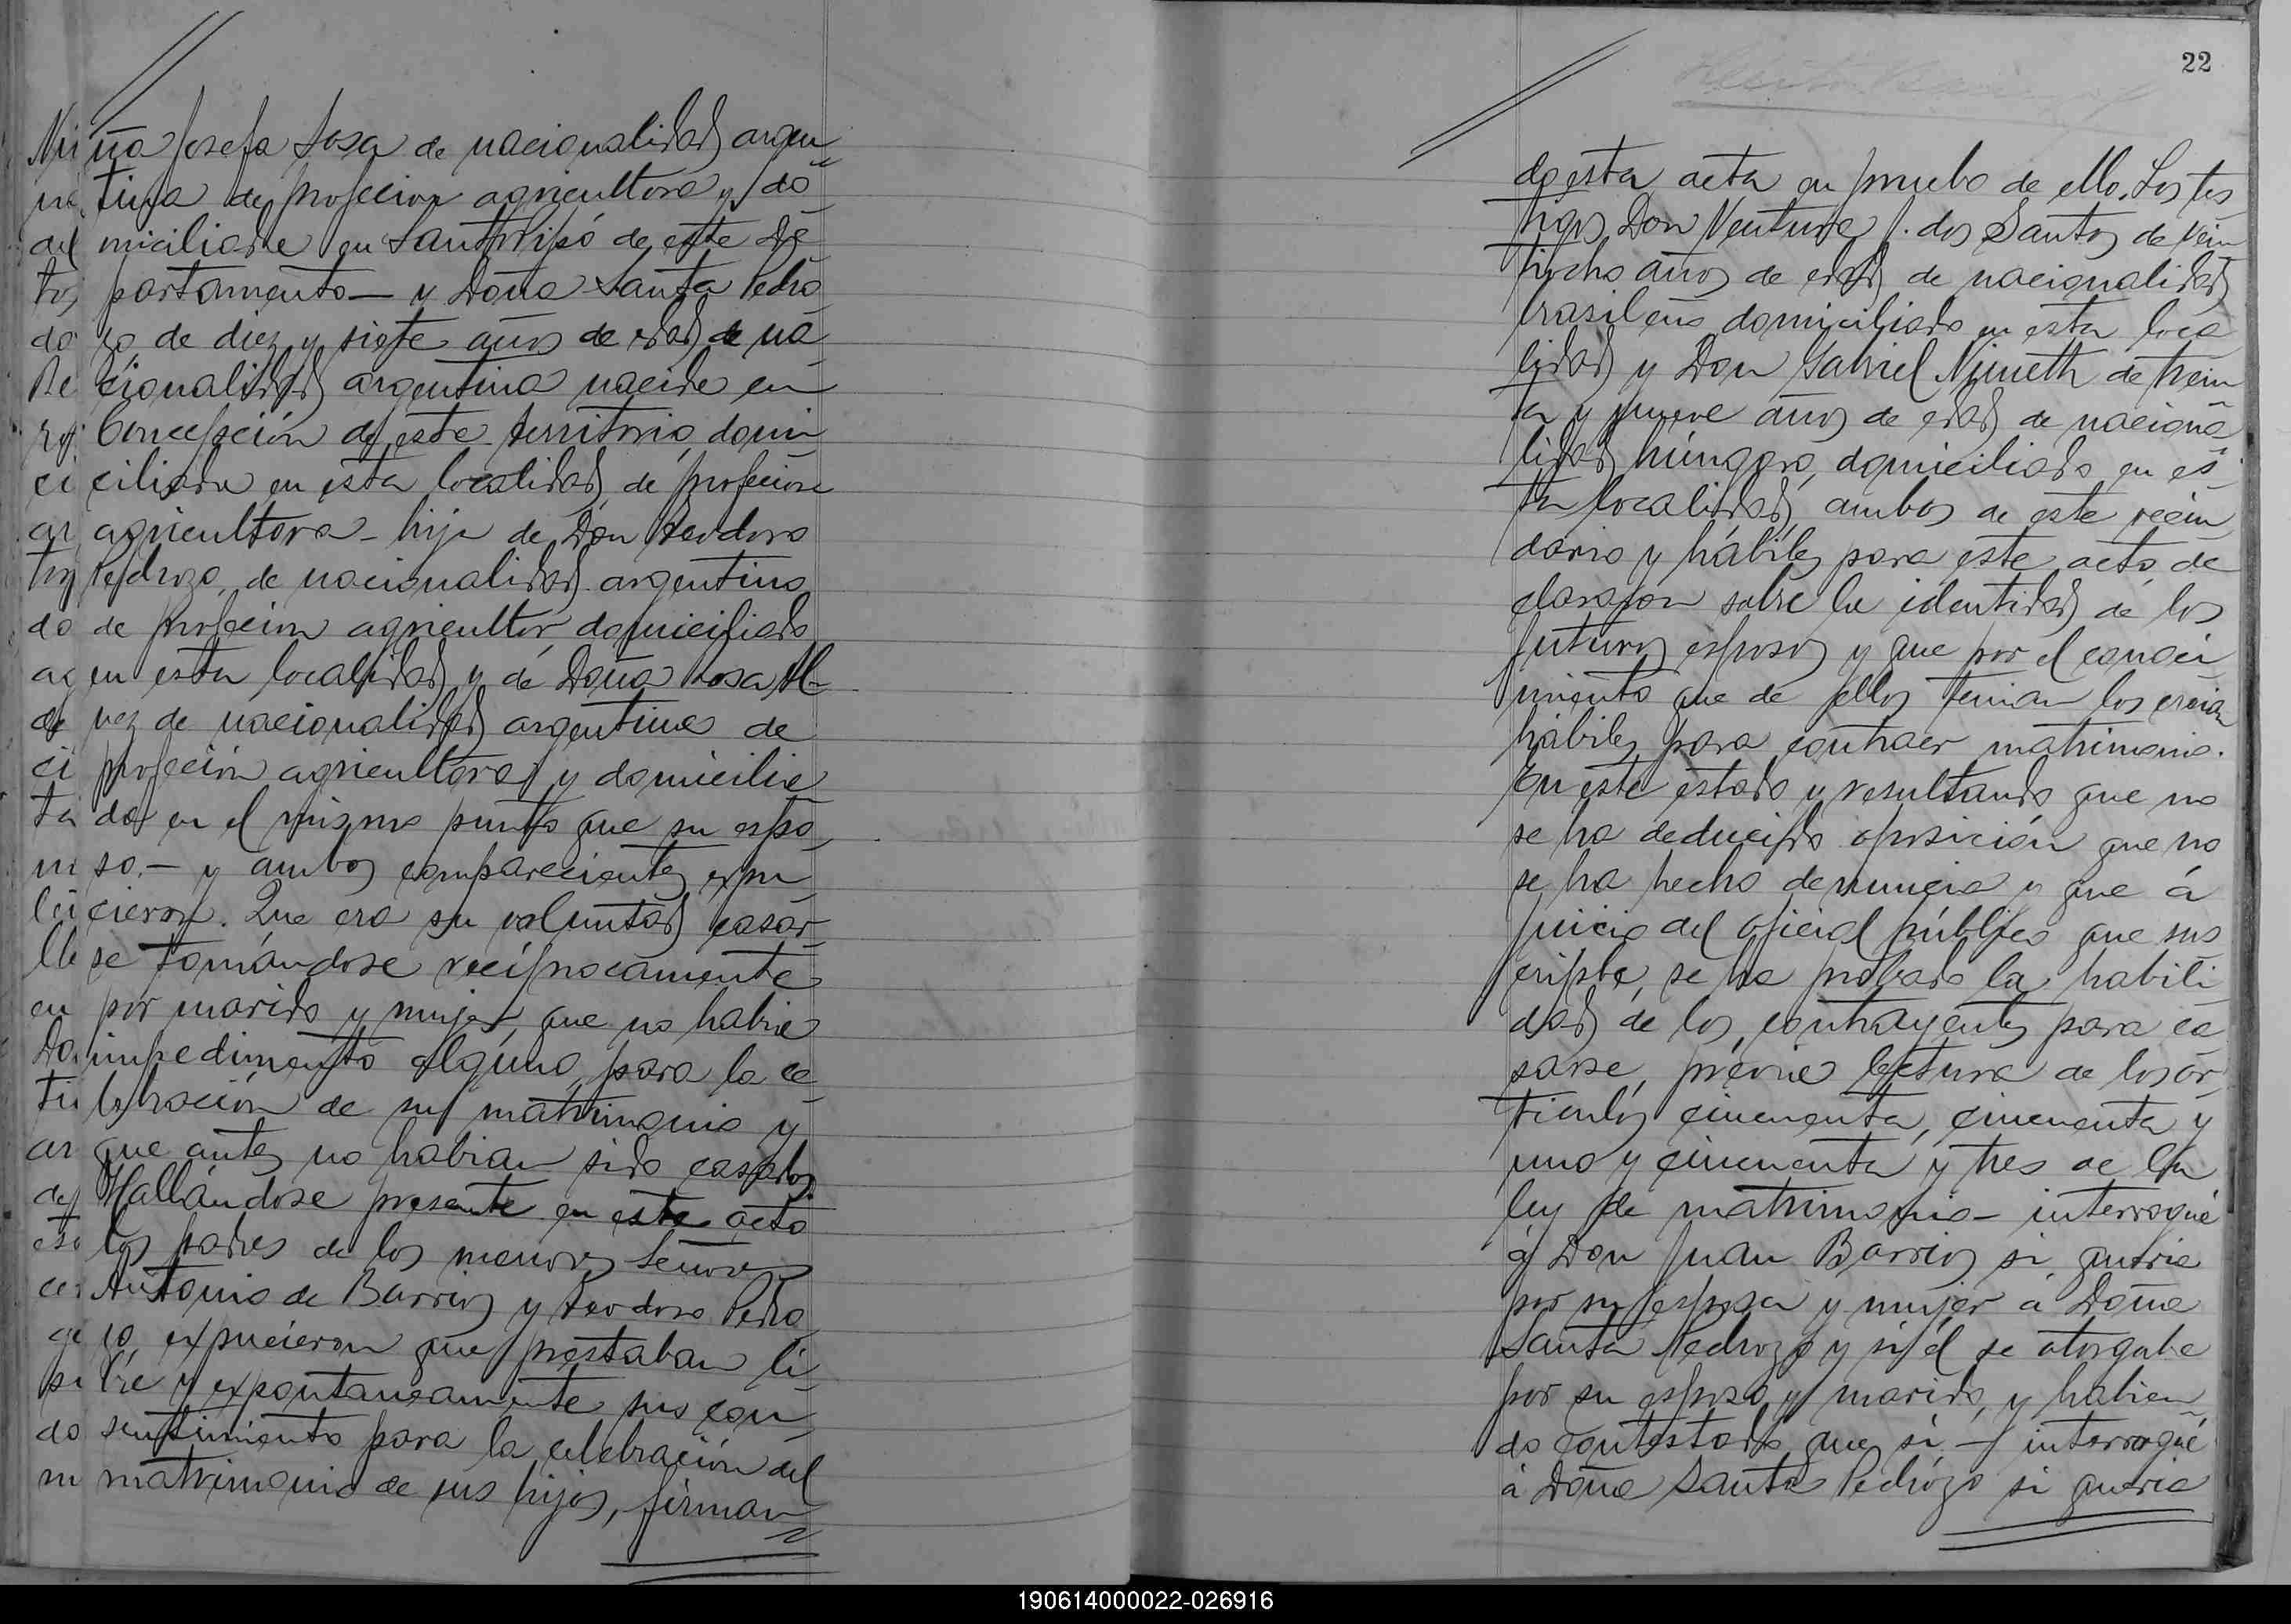 ña Josefa Sosa de nacionalidad argen
tina de profecion agricultora y do
miciliada en Santo Pipó de este De
partamento — y Doña Santa Pedro
zo, de diez y siete años de edad de na
cionalidad argentina nacida en
Concepción de este territorio, domi
ciliada en esta localidad, de profecion
agricultora - hija de Don Teodoro
Pedrozo, de nacionalidad argentino
de profecion agricultor, domiciliado
en esta localidad y de Doña Rosa Al-
vez de nacionalidad argentina de
profeción agricultora y domicilia
da en el mismo punto que su espo
so. — y ambos comparecientes expu
cieron. Que era su voluntad casar
se tomándose recíprocamente
por marido y mujer, que no habia
impedimento alguno para la ce
lebración de su matrimonio y
que antes no habian sido casados
Hallándose presente en este acto
los padres de los menores Señores
Antonio de Barrios y Teodoro Pedro
zo, expucieron que prestaban li
bre y expontaneamente sus con
sentimiento para la celebración del
matrimonio de sus hijos, firman
22
do esta acta en prueba de ello. Los tes
tigos Don Ventura J. dos Santos de vein
tiocho años de edad de nacionalidad
brasileño domiciliado en esta loca
lidad y Don Gabriel Nimeth de trein
ta y nueve años de edad de naciona
lidad húngara, domiciliado en es
ta localidad, ambos de este vecin
dario y hábiles para este acto de
clararon sobre la identidad de los
futuros esposos y que por el conoci
miento que de ellos tenian los creian
hábiles para contraer matrimonio.
En este estado y resultando que no
se ha deducido oposición que no
se ha hecho denuncia y que á
juicio del oficial público que sus
cripbe, se ha probado la habili
dad de los contrayentes para ca
sarse, prévia lectura de los ar
ticulos cincuenta, cincuenta y
uno y cincuenta y tres de la
ley de matrimonio - interrogué
á Don Juan Barrios si queria
por su esposa y mujer a Doña
Santa Pedrozo y si él se otorgaba
por su esposo y marido, y habien
do contestado que si - interrogué
á Doña Santa Pedrózo si queria
190614000022-026916